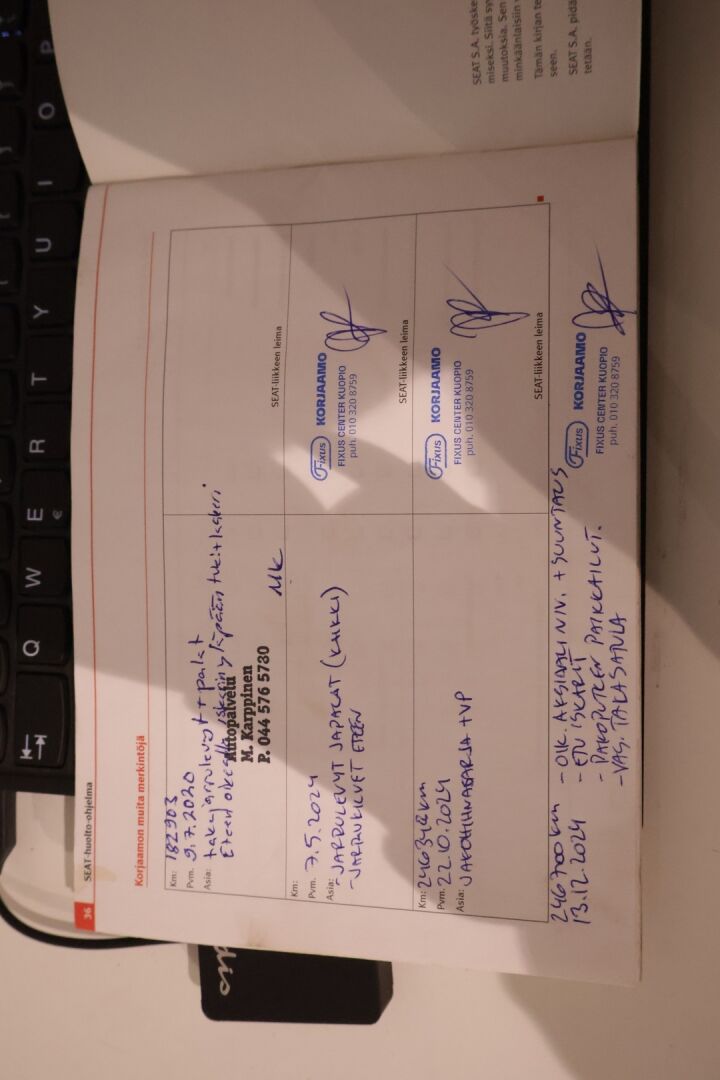 SEAT S.A. työske
miseksi. Siitä sy
muutoksia. Sen
minkäänlaisiin
Tämän kirjan te
seen.
SEAT S.A. pidä
tetään.
36 SEAT-huolto-ohjelma
Korjaamon muita merkintöjä
Km: 182903
Pvm. 9.7.2020
Asia: takajarrulevyt + palat
Eteen oikealle yläpään tuki + laakeri
Autopalvelu
M. Karppinen
P. 044 576 5730
MK
SEAT-liikkeen leima
Km:
Pvm. 7.5.2024
Asia: -JARRULEVYT JA PALAT (KAIKKI)
-JARRUKILVET ETEEN
Fixus KORJAAMO
FIXUS CENTER KUOPIO
puh. 010 320 8759
SEAT-liikkeen leima
Km: 246342km
Pvm. 22.10.2024
Asia: JAKOHIHNASARJA + VP
Fixus KORJAAMO
FIXUS CENTER KUOPIO
puh. 010 320 8759
SEAT-liikkeen leima
246700km
13.12.2024
- OIK. AKSIAALI NIV. + SUUNTAUS
- ETU ISKARIT
- PAKOPUTKEN PAIKKAILUT.
- VAS. TAKASATULA
Fixus KORJAAMO
FIXUS CENTER KUOPIO
puh. 010 320 8759
Q W E R T Y U I O P
€